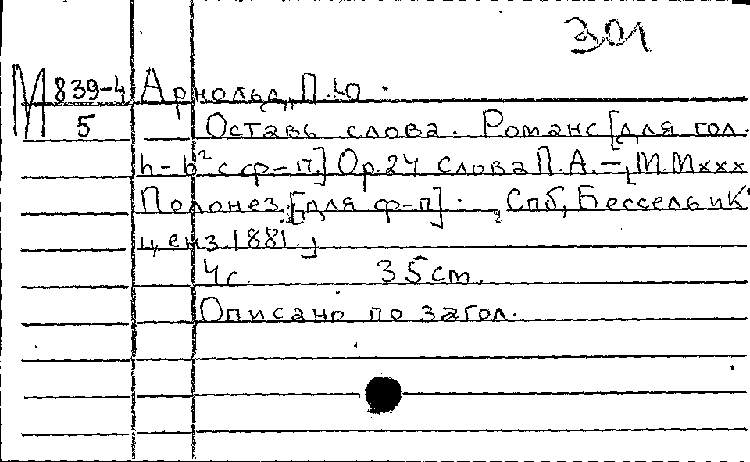 301
М 839-4 Арнольд, П.Ю.
5 Оставь слова. Романс [для гол.
h-b² с ф-п.] Op.24 Слова П.А.-, М.Мxxx
Полонез. [для ф-п]. , Спб, Бессель и К°
ценз. 1881,
4с. 35cm.
Описано по загол.